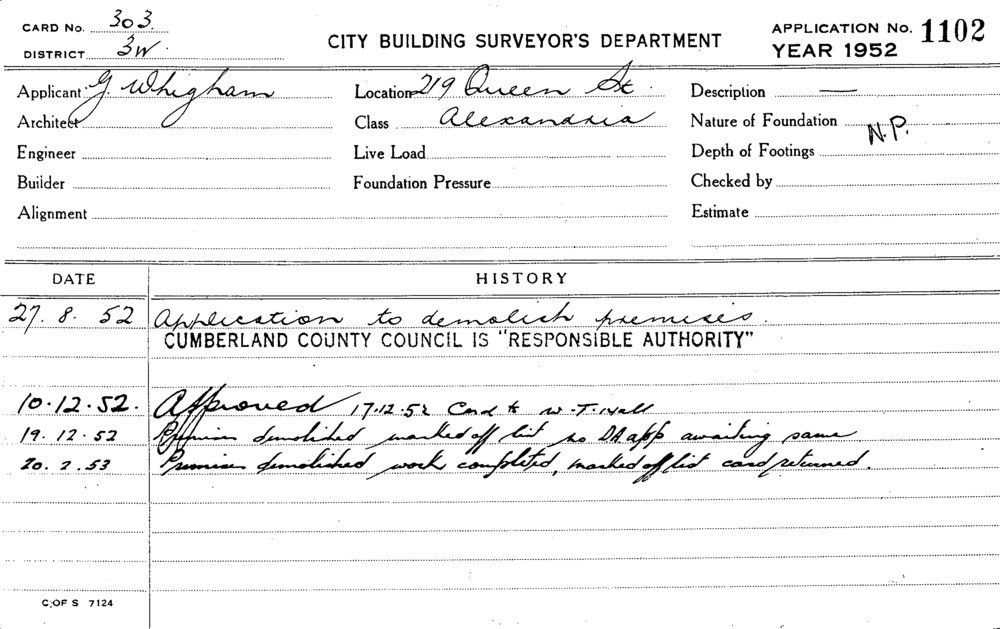 CARD No. 303
DISTRICT 3W.
CITY BUILDING SURVEYOR'S DEPARTMENT
APPLICATION No. 1102
YEAR 1952
Applicant G Whigham
Location 219 Queen St.
Description —
Architect
Class Alexandria
Nature of Foundation N.P.
Engineer
Live Load
Depth of Footings
Builder
Foundation Pressure
Checked by
Alignment
Estimate
DATE HISTORY
27. 8. 52 Application to demolish premises.
CUMBERLAND COUNTY COUNCIL IS "RESPONSIBLE AUTHORITY"
10.12.52. Approved 17.12.52 Card to W.T.
19.12.52 Premises demolished marked off list no DA app awaiting same
20.2.53 Premises demolished work completed, marked off list card returned.
C. OF S 7124